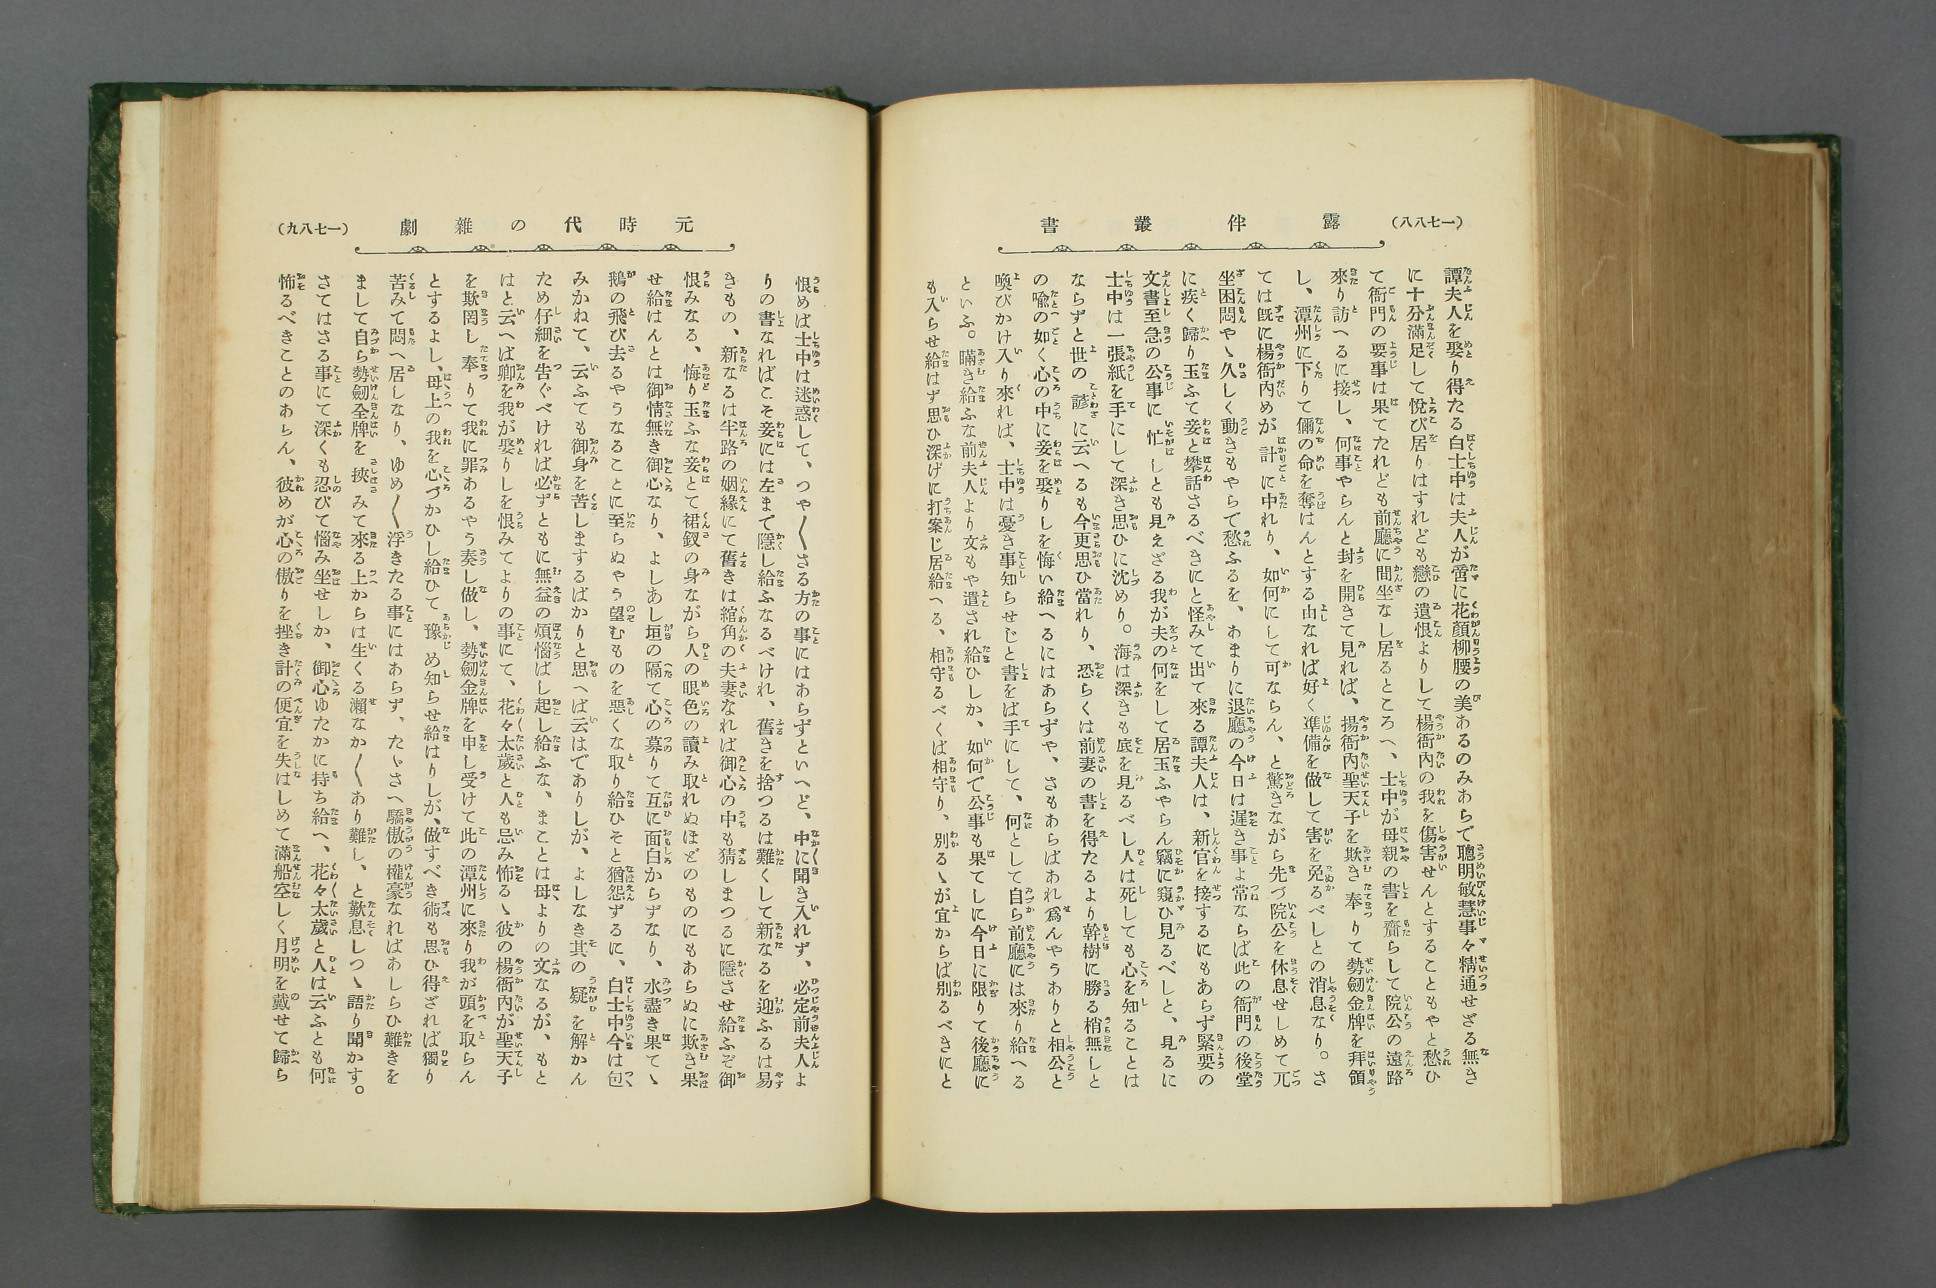 (一七八八)
露伴叢書
譚夫人を娶り得たる白士中は夫人が啻に花顏柳腰の美あるのみあらで聰明敏慧事々精通せざる無き
に十分滿足して悅び居りはすれども戀の遺恨よりして楊衙内の我を傷害せんとすることもやと愁ひ
て衙門の要事は果てたれども前廳に間坐なし居るところへ、士中が母親の書を齎らして院公の遠路
來り訪へるに接し、何事やらんと封を開きて見れば、揚衙内聖天子を欺き奉りて勢劒金牌を拜領
し、潭州に下りて儞の命を奪はんとする由なれば好く凖備を做して害を免るべしとの消息なり。さ
ては既に楊衙内めが計に中れり、如何にして可ならん、と驚きながら先づ院公を休息せしめて兀
坐困悶やゝ久しく動きもやらで愁ふるを、あまりに退廳の今日は遲き事よ常ならば此の衙門の後堂
に疾く歸り玉ふて妾と攀話さるべきにと怪みて出て來る譚夫人は、新官を接するにもあらず緊要の
文書至急の公事に忙しとも見えざる我が夫の何をして居玉ふやらん竊に窺ひ見るべしと、見るに
士中は一張紙を手にして深き思ひに沈めり。海は深きも底を見るべし人は死しても心を知ることは
ならずと世の諺に云へるも今更思ひ當れり、恐らくは前妻の書を得たるより幹樹に勝る梢無しと
の喩の如く心の中に妾を娶りしを悔い給へるにはあらずや、さもあらばあれ爲んやうありと相公と
喚びかけ入り來れば、士中は憂き事知らせじと書をば手にして、何として自ら前廳には來り給へる
といふ。瞞き給ふな前夫人より文もや遣され給ひしか、如何で公事も果てしに今日に限りて後廳に
も入らせ給はず思ひ深げに打案じ居給へる、相守るべくば相守り、別るゝが宜からば別るべきにと
元時代の雜劇
(一七八九)
恨めば士中は迷惑して、つや〱さる方の事にはあらずといへど、中に聞き入れず、必定前夫人よ
りの書なればこそ妾には左まで隱し給ふなるべけれ、舊きを捨つるは難くして新なるを迎ふるは易
きもの、新なるは半路の姻緣にて舊きは綰角の夫妻なれば御心の中も猜しまつるに隱させ給ふぞ御
恨みなる、悔り玉ふな妾とて裙釵の身ながら人の眼色の讀み取れぬほどのものにもあらぬに欺き果
せ給はんとは御情無き御心なり、よしあし垣の隔て心の募りて互に面白からずなり、水盡き果てゝ
鵝の飛び去るやうなることに至らぬやう望むものを惡くな取り給ひそと猶怨ずるに、白士中今は包
みかねて、云ふても御身を苦しまするばかりと思へば云はでありしが、よしなき其の疑を解かん
ため仔細を告ぐべければ必ずともに無益の煩惱ばし起し給ふな、まことは母よりの文なるが、もと
はと云へば卿を我が娶りしを恨みてよりの事にて、花々太歲と人も忌み怖るゝ彼の楊衙内が聖天子
を欺罔し奉りて我に罪あるやう奏し做し、勢劒金牌を申し受けて此の潭州に來り我が頭を取らん
とするよし、母上の我を心づかひし給ひて豫め知らせ給はりしが、做すべき術も思ひ得ざれば獨り
苦みて悶へ居しなり、ゆめ〱浮きたる事にはあらず、たゞさへ驕傲の權豪なればあしらひ難きを
まして自ら勢劒全牌を挾みて來る上からは生くる瀨なか〱あり難し、と歎息しつゝ語り聞かす。
さてはさる事にて深くも忍びて惱み坐せしか、御心ゆたかに持ち給へ、花々太歲と人は云ふとも何
怖るべきことのあらん、彼めが心の傲りを挫き計の便宜を失はしめて滿船空しく月明を戴せて歸ら